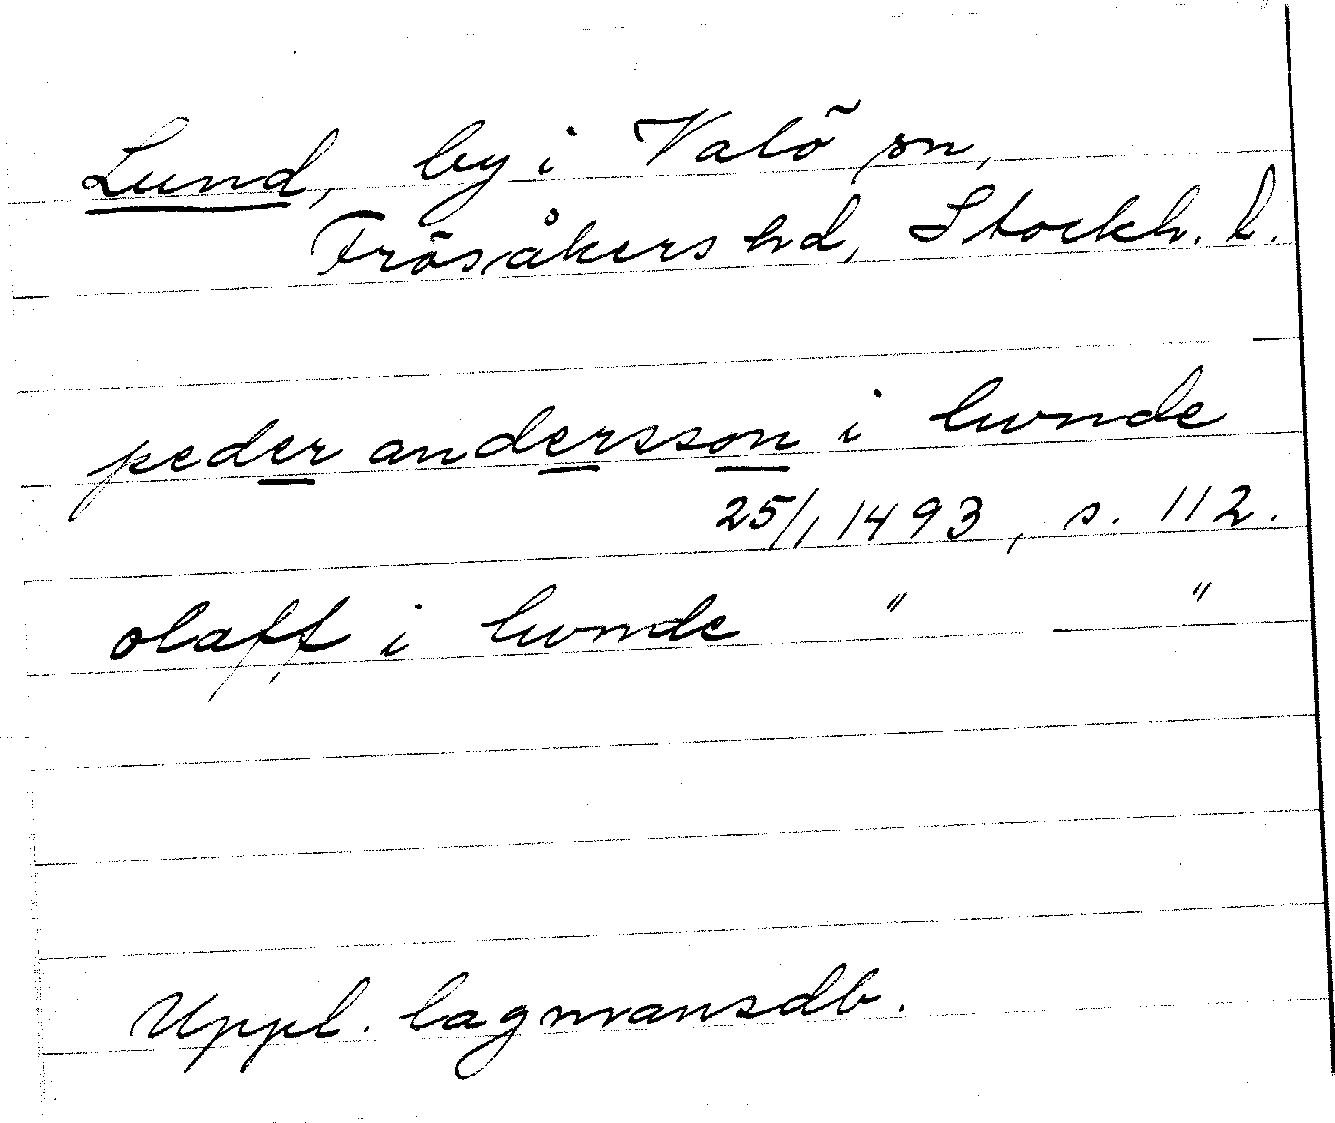 Lund, by i Valö sn,
Frösåkers hd, Stockh. l.
peder andersson i lunde
25/1 1493, s. 112.
olaff i lunde " "
Uppl. lagmansdb.